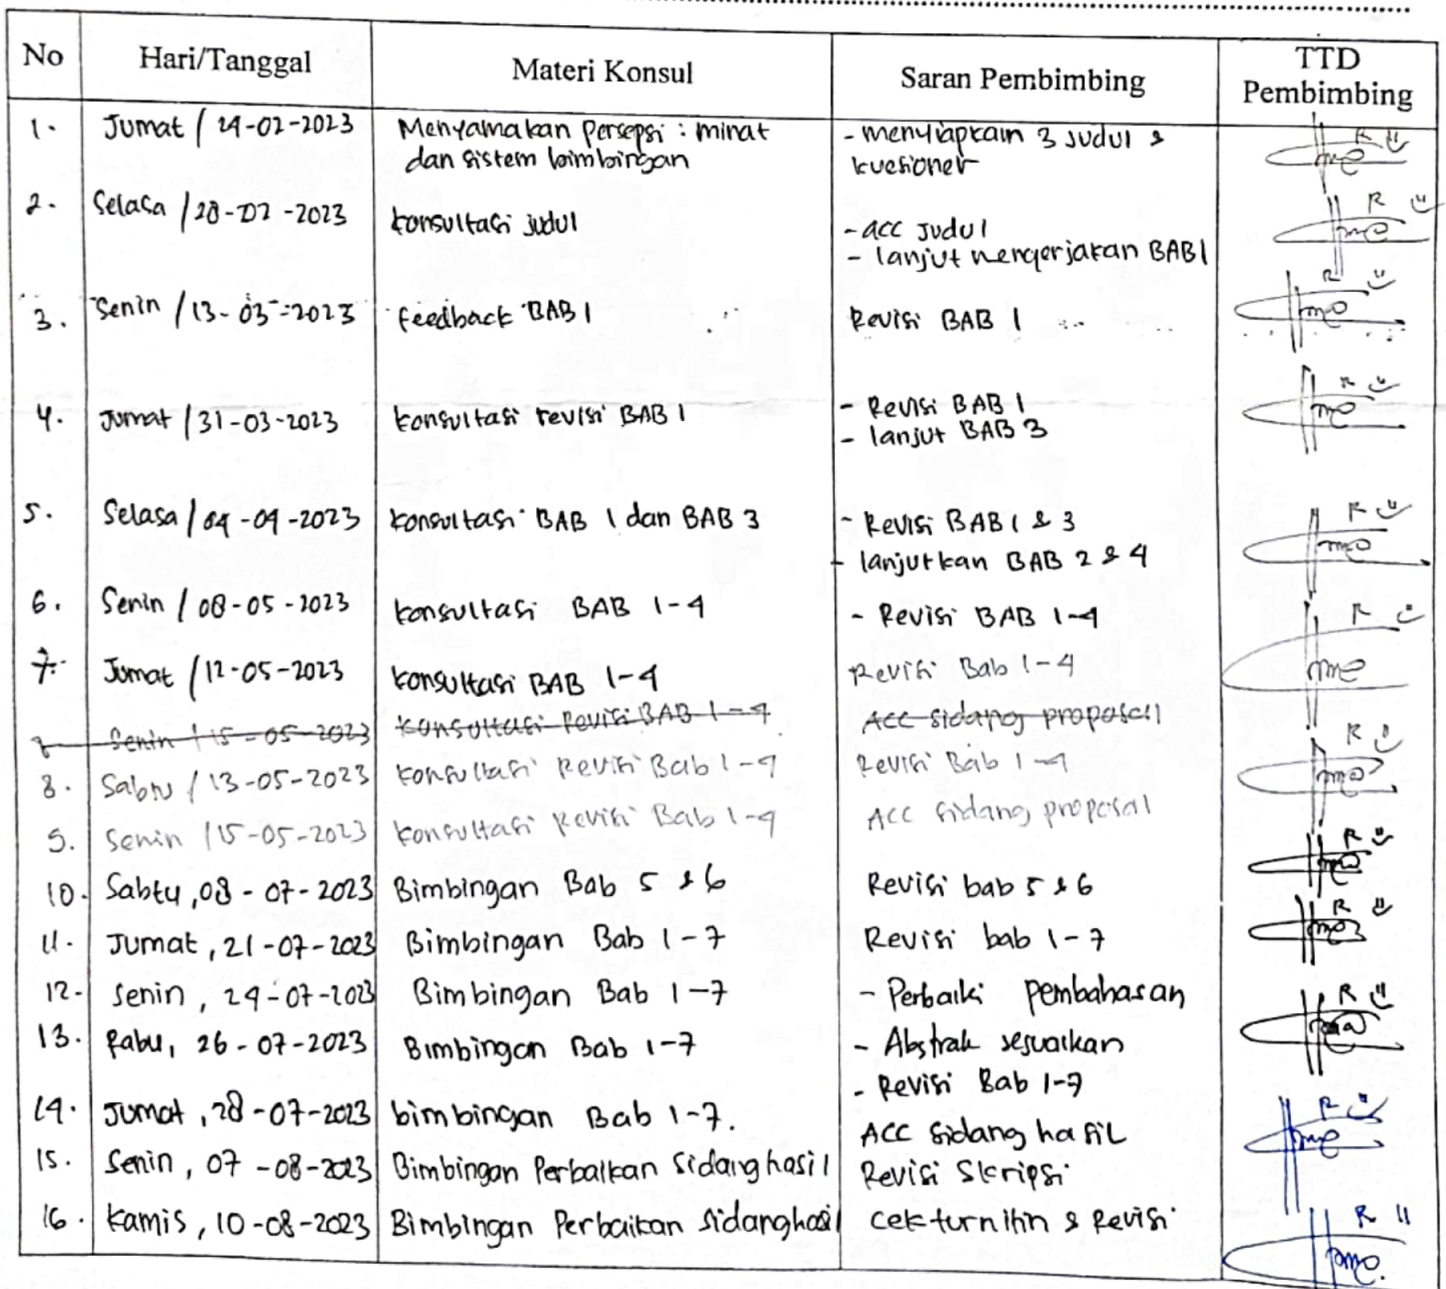 No Hari/Tanggal Materi Konsul Saran Pembimbing TTD
Pembimbing
1. Jumat / 24-02-2023 Menyamakan Persepsi : minat - menyiapkain 3 judul &
dan sistem bimbingan kuesioner
2. Selasa / 28-02-2023 konsultasi judul - acc judul
- lanjut mengerjakan BAB 1
3. Senin / 13-03-2023 feedback BAB 1 Revisi BAB 1
4. Jumat / 31-03-2023 konsultasi revisi BAB 1 - Revisi BAB 1
- lanjut BAB 3
5. Selasa / 04-04-2023 konsultasi BAB 1 dan BAB 3 - Revisi BAB 1 & 3
- lanjutkan BAB 2 & 4
6. Senin / 08-05-2023 konsultasi BAB 1-4 - Revisi BAB 1-4
7. Jumat / 12-05-2023 konsultasi BAB 1-4 Revisi Bab 1-4
Senin / 15-05-2023 konsultasi Revisi BAB 1-4 Acc sidang proposal
8. Sabtu / 13-05-2023 konsultasi Revisi Bab 1-4 Revisi Bab 1-4
9. Senin / 15-05-2023 konsultasi Revisi Bab 1-4 ACC sidang proposal
10. Sabtu, 08-07-2023 Bimbingan Bab 5 & 6 Revisi bab 5 & 6
11. Jumat, 21-07-2023 Bimbingan Bab 1-7 Revisi bab 1-7
12. Senin, 24-07-2023 Bimbingan Bab 1-7 - Perbaiki pembahasan
13. Rabu, 26-07-2023 Bimbingan Bab 1-7 - Abstrak sesuaikan
- Revisi Bab 1-7
14. Jumat, 28-07-2023 bimbingan Bab 1-7. ACC sidang hasil
15. Senin, 07-08-2023 Bimbingan Perbaikan sidang hasil Revisi Skripsi
16. Kamis, 10-08-2023 Bimbingan Perbaikan sidang hasil cek turnitin & Revisi